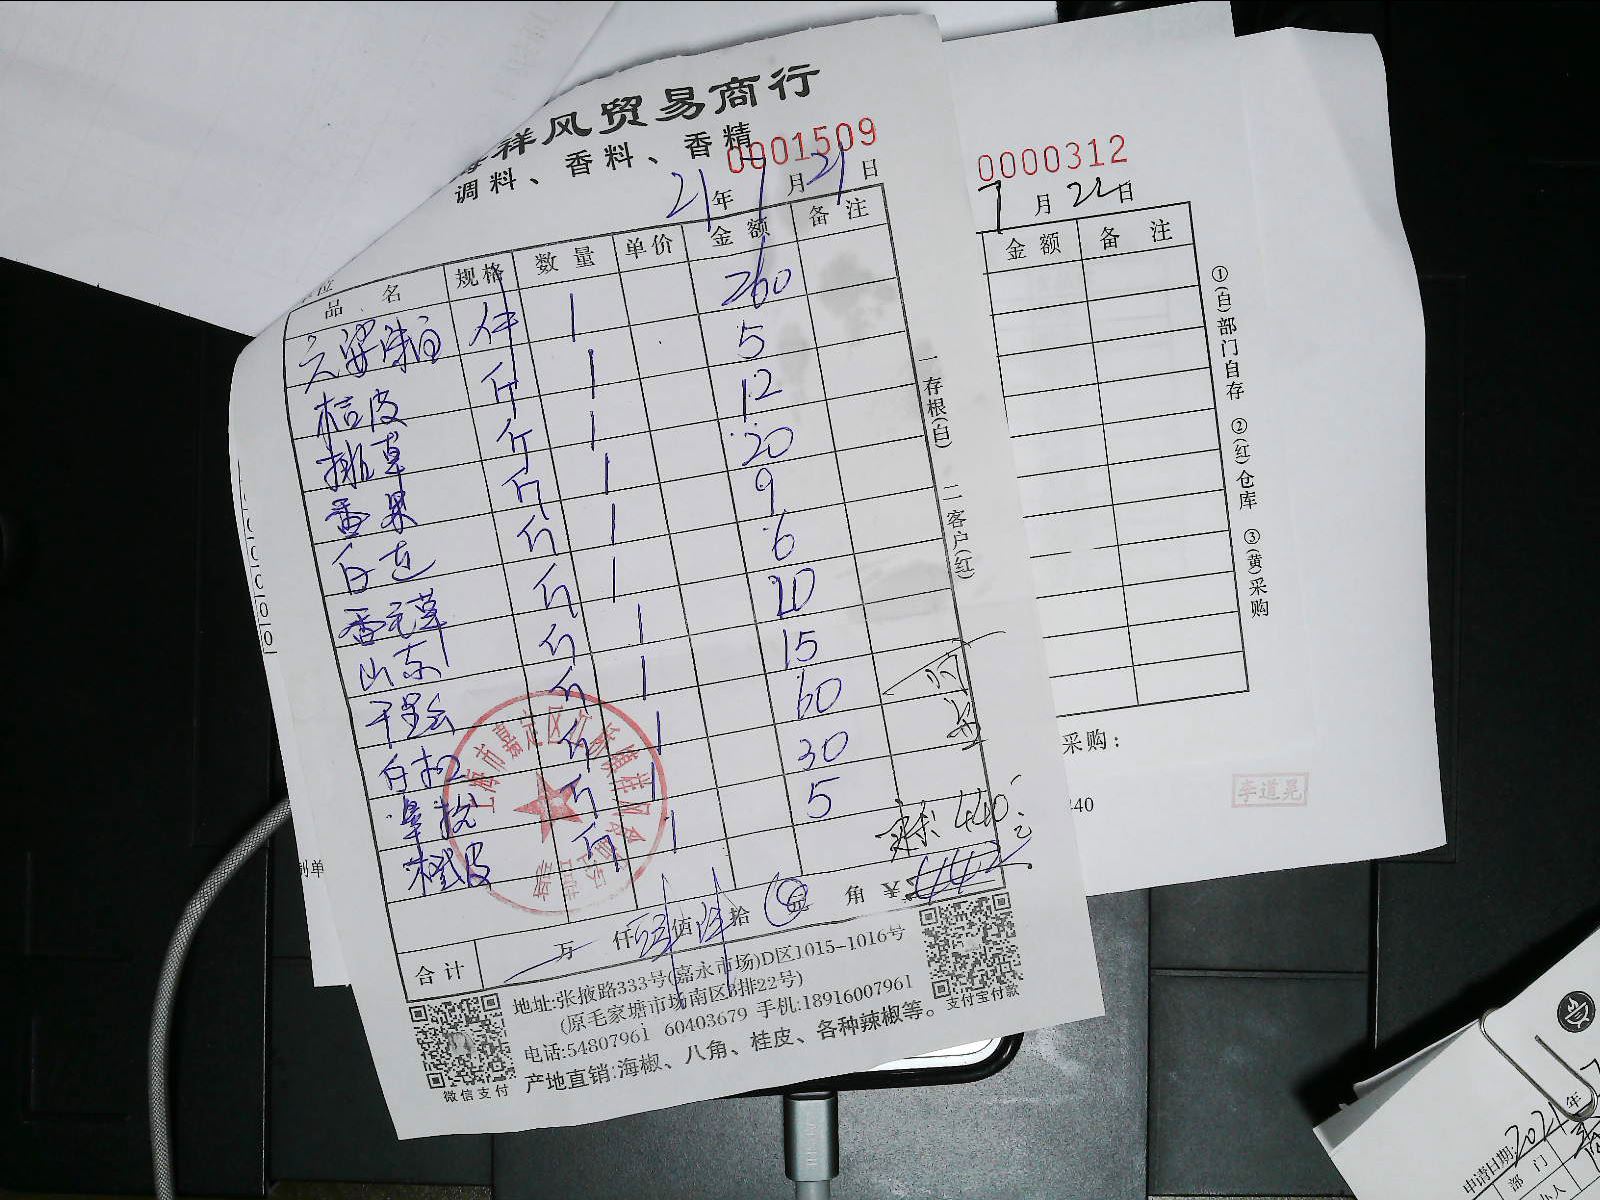 祥风贸易商行
调料、香料、香精
0001509
21年7月21日
品名 规格 数量 单价 金额 备注
件 1 260
桂皮 斤 1 5
排草 斤 1 12
香果 斤 1 20
白芷 斤 1 9
斤 1 6
山东 斤 1 20
斤 1 15
白扣 斤 1 60
荜拨 斤 1 30
斤 1 5
440
合计 万 仟 佰 拾 元 角 442
一存根(白) 二客户(红)
地址:张掖路333号(嘉永市场)D区1015-1016号
(原毛家塘市场南区3排22号)
电话:54807961 60403679 手机:18916007961
产地直销:海椒、八角、桂皮、各种辣椒等。
微信支付
支付宝付款
上海市嘉定区江桥
0000312
7月22日
金额 备注
①(白)部门自存 ②(红)仓库 ③(黄)采购
采购:
240
李道晃
制单
申请日期:2021年7
部门